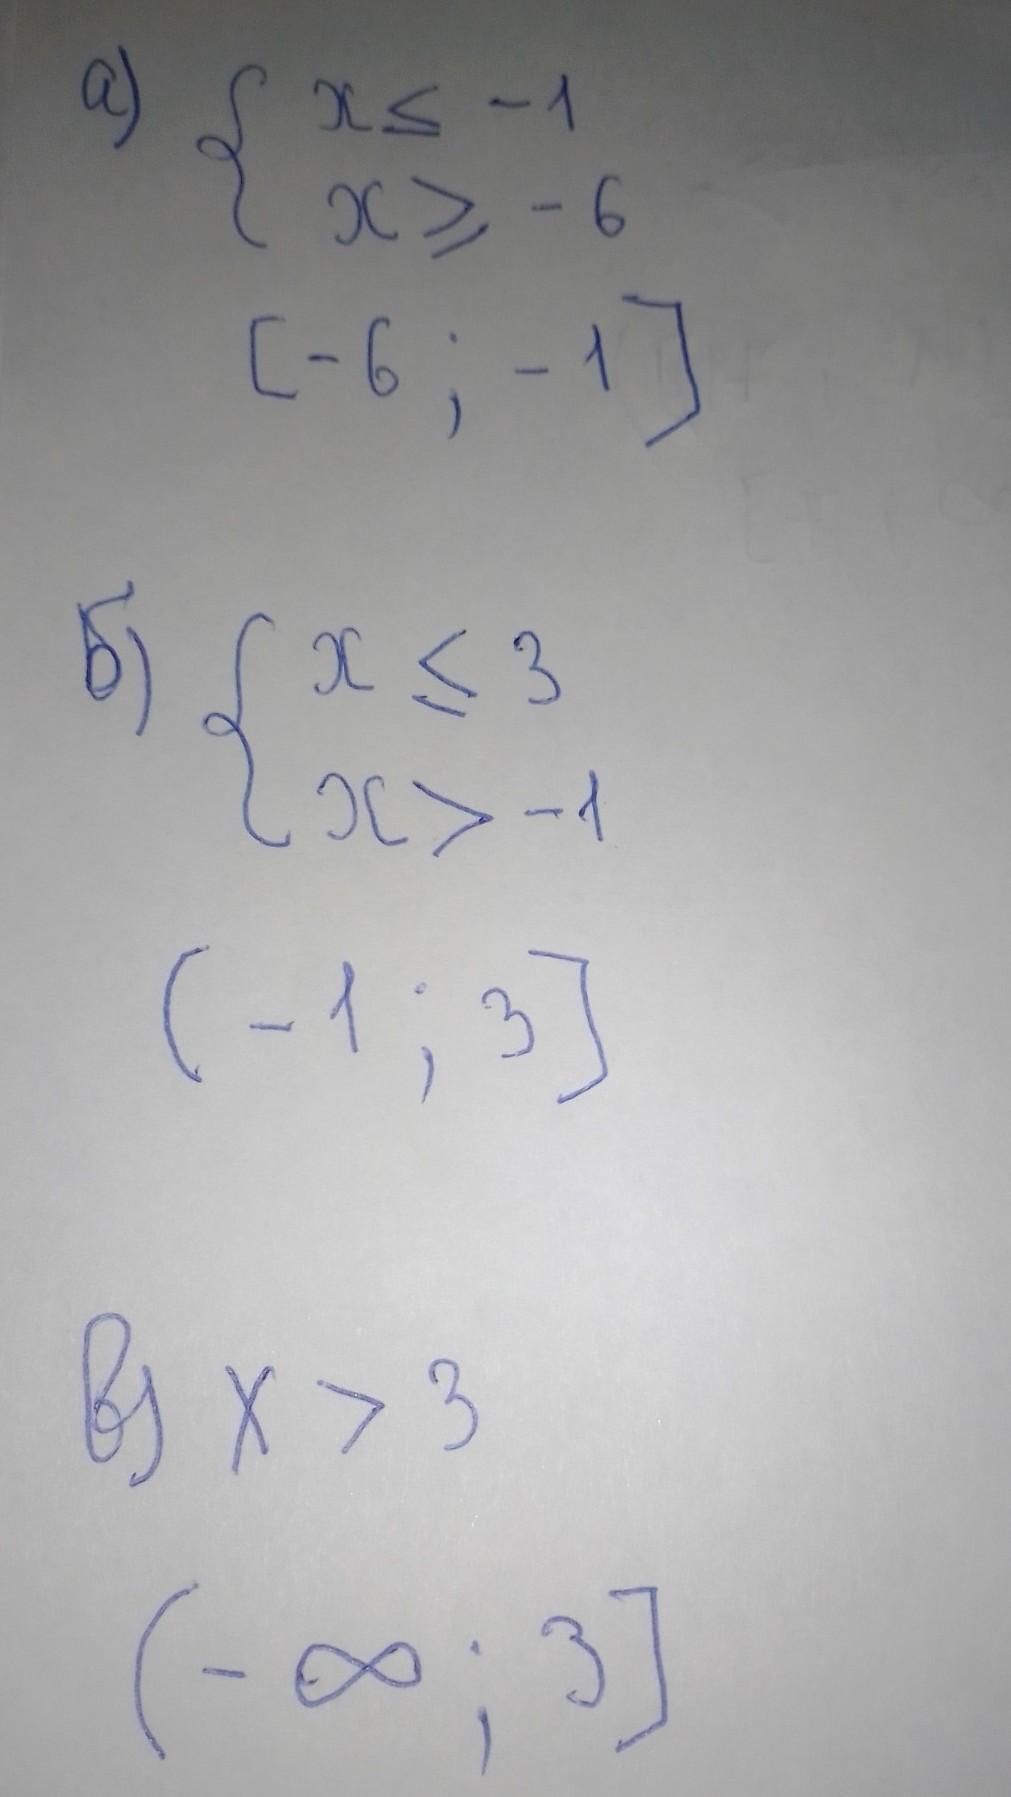 а) { x ≤ -1
x ≥ -6
[-6 ; -1]
б) { x ≤ 3
x > -1
(-1 ; 3]
в) x > 3
(-∞ ; 3]